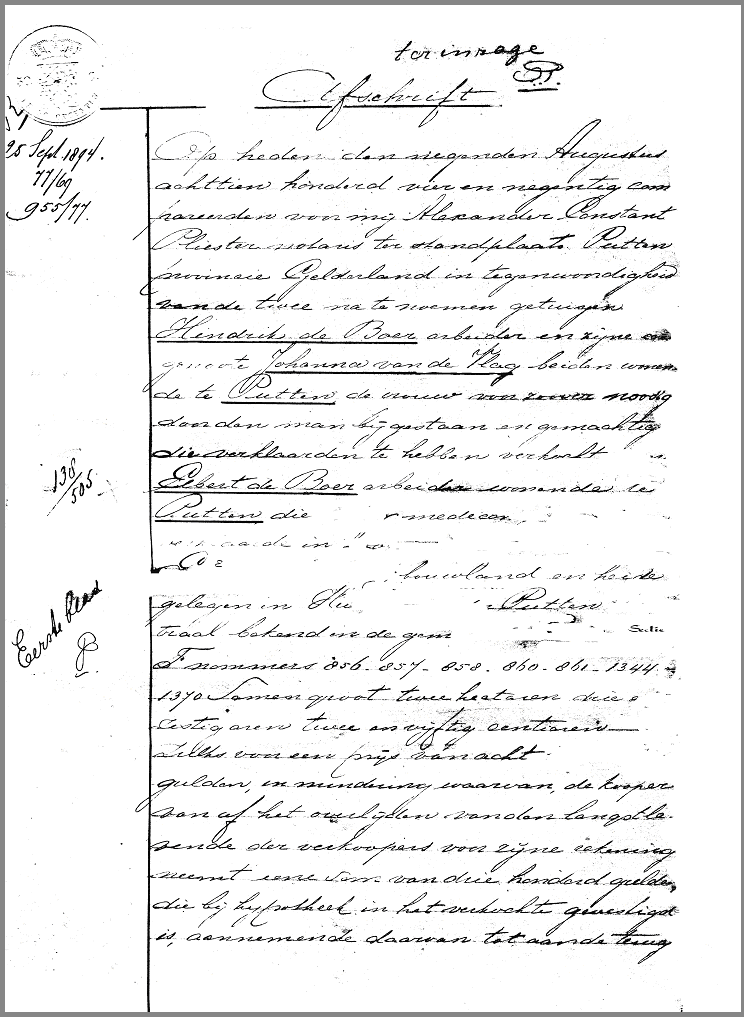 ter inzage
Afschrift
25 Sept 1894.
77/69
955/77.
Op heden den negenden Augustus
achttien honderd vier en negentig com
pareerden voor mij Alexander Constant
Pliester notaris ter standplaats Putten
provincie Gelderland in tegenwoordigheid
van de twee na te noemen getuigen
Hendrik de Boer arbeider en zijne
genoote Johanna van de Vlag beiden wonen
de te Putten de vrouw voor zoover noodig
door den man bijgestaan en gemachtig
die verklaarden te hebben verkocht
138/505
Eibert de Boer arbeider wonende te
Putten die mede
in
bouwland en heide
Eerste blad
gelegen in Putten
traal bekend in de gem Sectie
F nommers 856-857-858-860-861-1344-
1370 Samen groot twee hectaren drie
zestig aren twee en vijftig centiaren
Zulks voor een prijs van acht
gulden, in mindering waarvan, de kooper
van af het overlijden van den langstle-
vende der verkoopers voor zijne rekening
neemt eene som van drie honderd gulden,
die bij hypotheek in het verkochte gevestigd
is, aannemende daarvan tot aan de terug